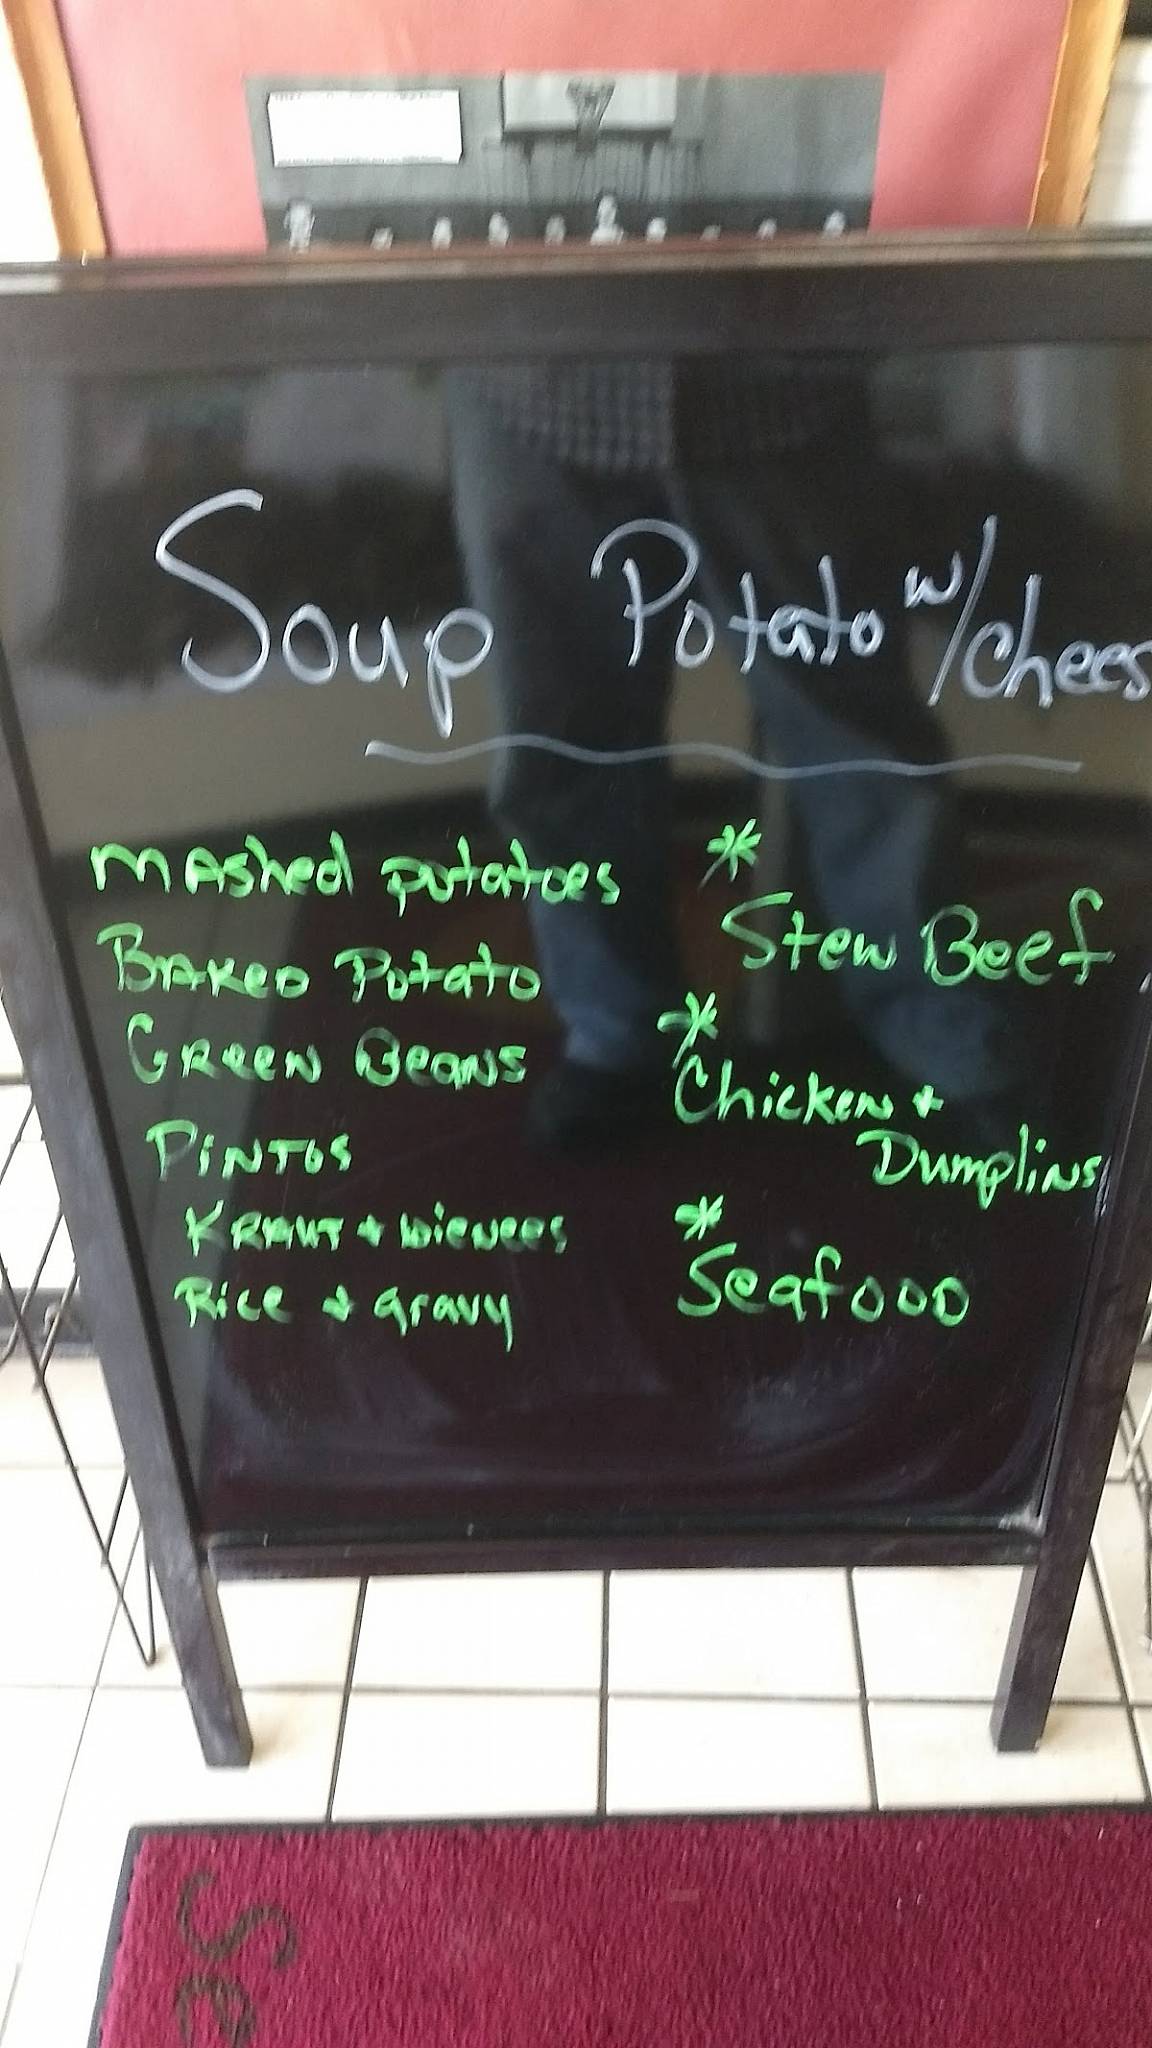 Soup Potato w/chees
mAshed potatoes
BAKED Potato
GReeN BeaNS
PiNTos
KRAUT + wieNees
Rice + gravy
*
Stew Beef
*
Chicken +
Dumplins
*
Seafood
Se